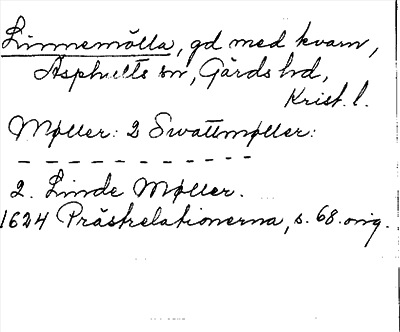 Linnemölla, gd med kvarn,
Asphults sn, Gärds hd,
Krist. l.
Møller: 2 Swattmøller:
2. Linde Møller.
1624 Prästrelationerna, s. 68. orig.